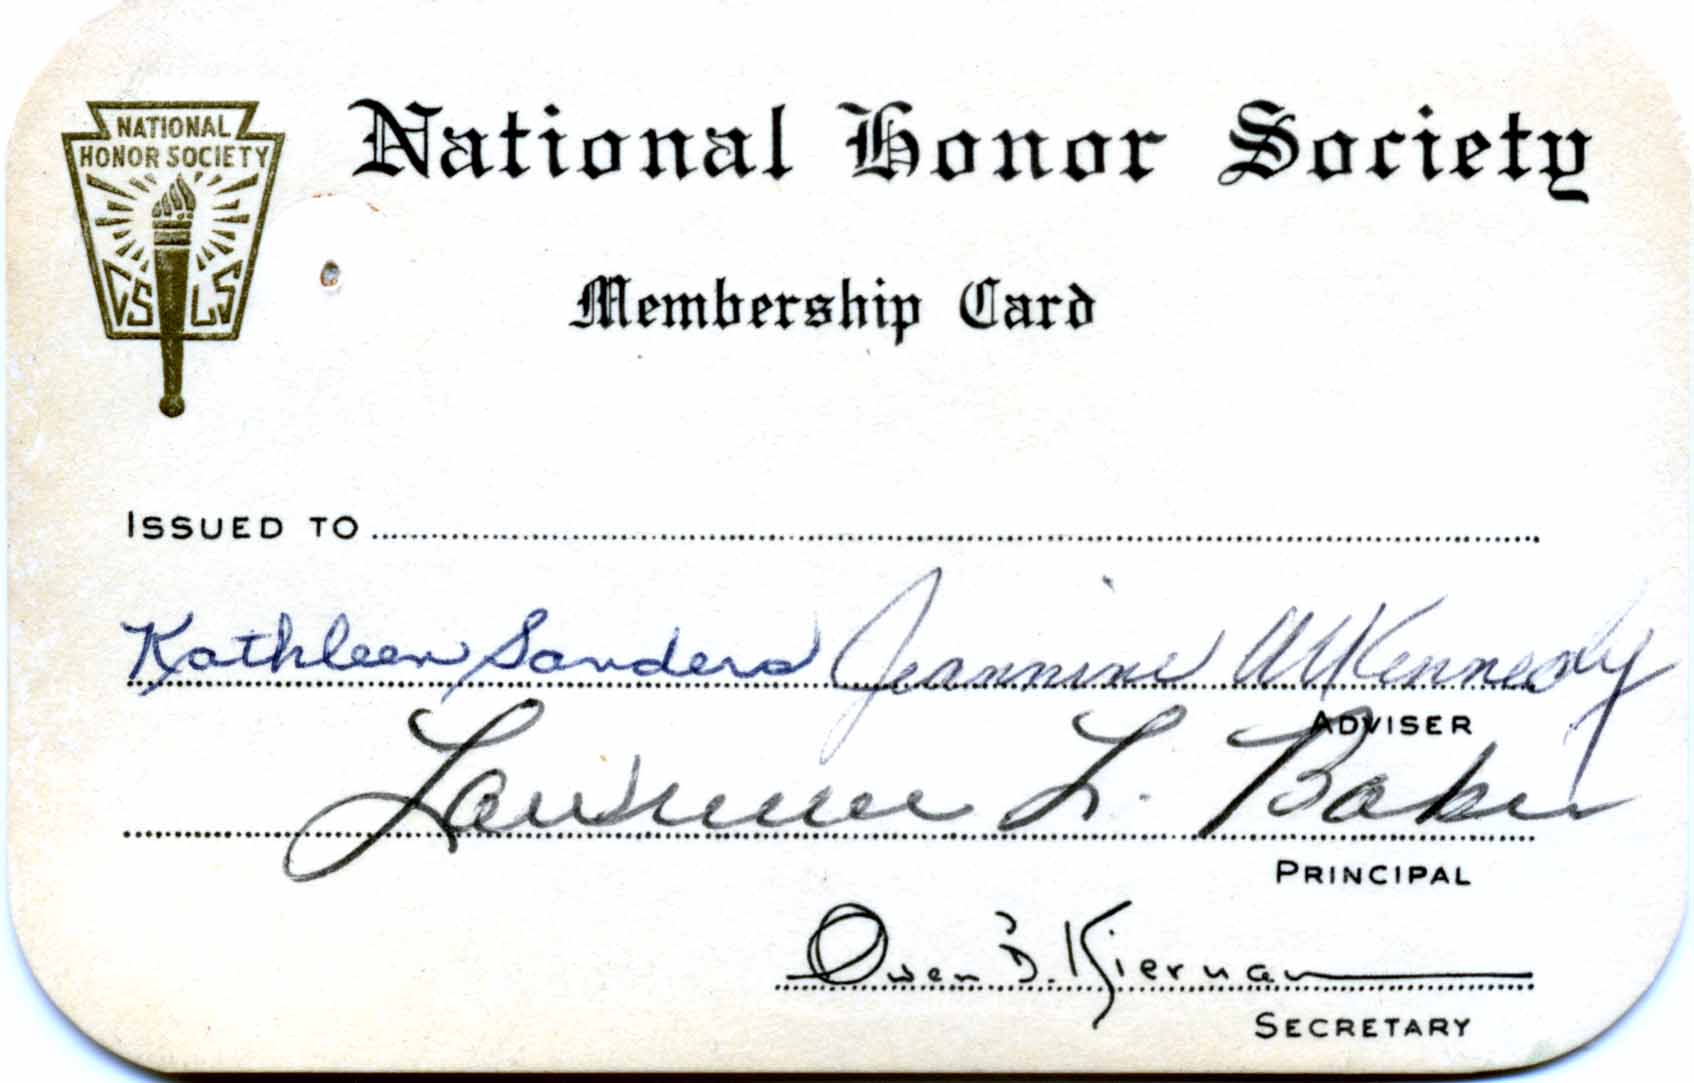 NATIONAL
HONOR SOCIETY
C S L S
National Honor Society
Membership Card
ISSUED TO
Kathleen Sanders Jeannine W Kennedy
ADVISER
Lawrence L. Baker
PRINCIPAL
Owen B. Kiernan
SECRETARY